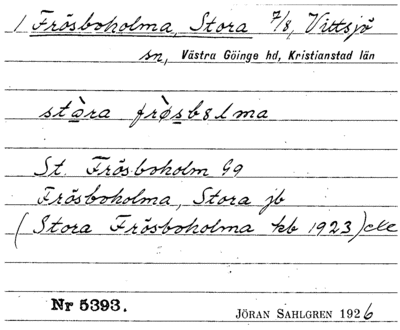 1 Frösboholma, Stora 7/8, Vittsjö
sn, Västra Göinge hd, Kristianstad län
stòra frö̀sbɛlma
St. Frösboholm G9
Frösboholma, Stora jb
(Stora Frösboholma kb 1923)
Nr 5393. JÖRAN SAHLGREN 1926